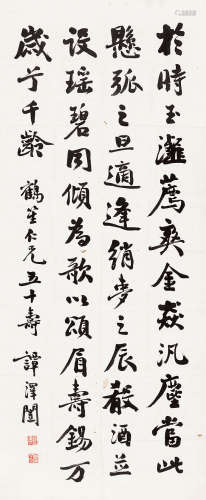 於時玉瀣薦爽金猋汎塵當此
懸弧之旦適逢綃夢之辰嚴酒並
設瑤碧同傾為歌以頌眉壽錫万
歲兮千齡
鶴笙仁兄五十壽 譚澤闓